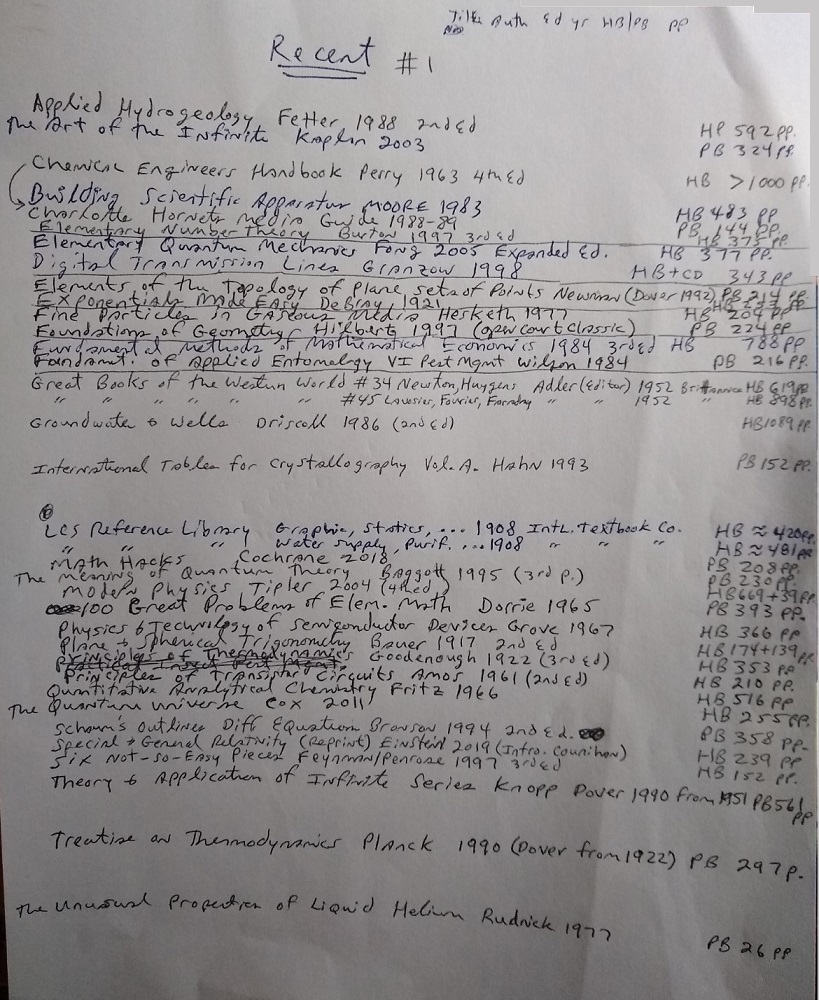 Title Auth Ed yr HB/PB pp
Recent #1
Applied Hydrogeology Fetter 1988 2nd Ed HB 592 pp.
The Art of the Infinite Kaplan 2003 PB 324 pp.
Chemical Engineers Handbook Perry 1963 4th Ed HB >1000 pp.
Building Scientific Apparatus MOORE 1983 HB 483 pp
Charlotte Hornets Media Guide 1988-89 PB 144 pp.
Elementary Number Theory Burton 1997 3rd Ed HB 375 pp.
Elementary Quantum Mechanics Fong 2005 Expanded Ed. HB 377 pp.
Digital Transmission Lines Granzow 1998 HB+CD 343 pp
Elements of the Topology of Plane sets of Points Newman (Dover 1992) PB 214 pp.
Exponentials Made Easy DeBray 1921 HB pp.
Fine Particles in Gaseous Media Hesketh 1977 HB 204 pp
Foundations of Geometry Hilbert 1997 (open court classic) PB 224 pp.
Fundamental Methods of Mathematical Economics 1984 3rd Ed HB 788 pp
Fundamt. of Applied Entomology VI Pest Mgmt Wilson 1984 PB 216 pp.
Great Books of the Western World #34 Newton, Huygens Adler (Editor) 1952 Brittannica HB 619 pp.
" " " " " " #45 Lavosier, Fourier, Faraday " " 1952 " HB 898 pp.
Groundwater & Wells Driscoll 1986 (2nd Ed) HB 1089 pp.
International Tables for Crystallography Vol. A. Hahn 1993 PB 152 pp.
Reference Library Graphic, Statics, ... 1908 Intl. Textbook Co. HB ≈ 420 pp.
" " " Water Supply, Purif. ... 1908 " " " HB ≈ 481 pp
Math Hacks Cochrane 2018 PB 208 pp.
The Meaning of Quantum Theory Baggott 1995 (3rd p.) PB 230 pp.
Modern Physics Tipler 2004 (4th ed) HB 669+39 pp.
100 Great Problems of Elem. Math Dorrie 1965 PB 393 pp.
Physics & Technology of Semiconductor Devices Grove 1967 HB 366 pp
Plane & Spherical Trigonometry Bauer 1917 2nd Ed HB 174+139 pp.
Principles of Thermodynamics Goodenough 1922 (3rd Ed) HB 353 pp
Principles of Transistor Circuits Amos 1961 (2nd Ed) HB 210 pp.
Quantitative Analytical Chemistry Fritz 1966 HB 516 pp
The Quantum Universe Cox 2011 HB 255 pp.
Schaum's Outlines Diff Equation Bronson 1994 2nd Ed. PB 358 pp.
Special & General Relativity (Reprint) Einstein 2019 (Intro. Counihan) HB 239 pp
Six Not-So-Easy Pieces Feynman/Penrose 1997 3rd Ed HB 152 pp.
Theory & Application of Infinite Series Knopp Dover 1990 from 1951 PB 561 pp
Treatise on Thermodynamics Planck 1990 (Dover from 1922) PB 297 p.
The Unusual Properties of Liquid Helium Rudnick 1977 PB 26 pp